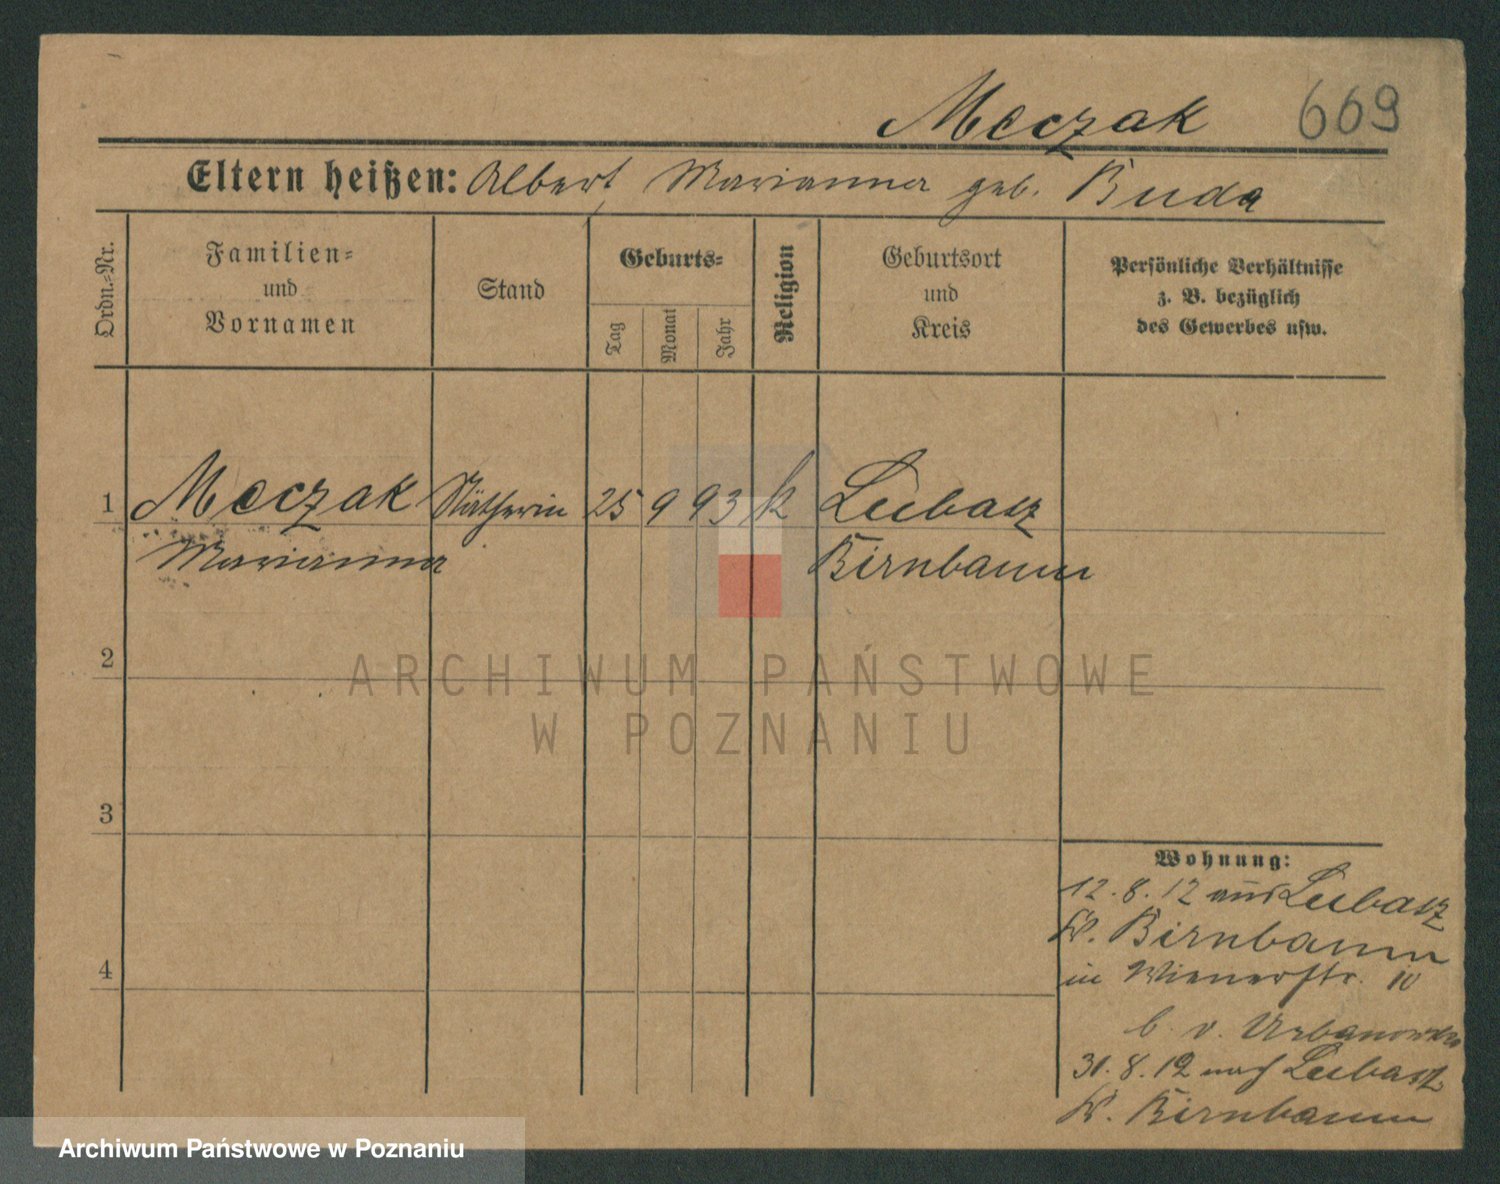 Meczak 669
Eltern heißen: Albert, Marianna geb. Buda
Ordn.-Nr.
Familien-
und
Vornamen
Stand
Geburts-
Tag
Monat
Jahr
Religion
Geburtsort
und
Kreis
Persönliche Verhältnisse
z. B. bezüglich
des Gewerbes usw.
1 Meczak Nätherin 25 9 93 k Lubasz
Marianna Birnbaum
2
3
4
Wohnung:
12.8.12 aus Lubasz
K. Birnbaum
in Wienerstr. 10
b. v. Urbanowska
31.8.12 nach Lubasz
K. Birnbaum
ARCHIWUM PAŃSTWOWE
W POZNANIU
Archiwum Państwowe w Poznaniu